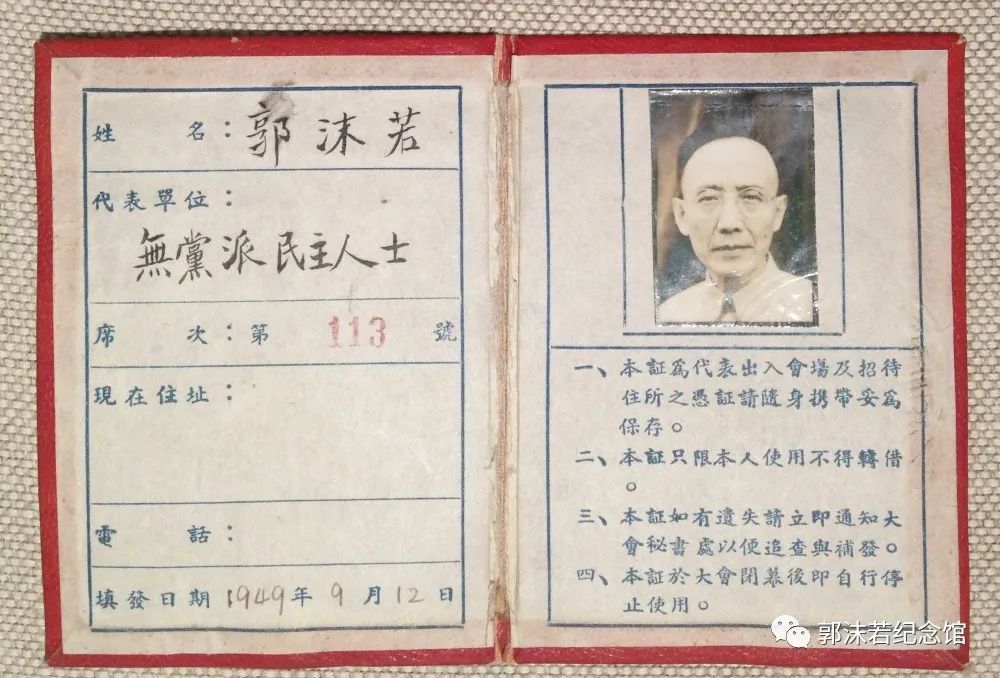 姓名：郭沫若
代表單位：
無黨派民主人士
席次：第 113 號
現在住址：
電話：
填發日期 1949年9月12日
一、本証為代表出入會場及招待
住所之憑証請隨身携帶妥為
保存。
二、本証只限本人使用不得轉借
。
三、本証如有遺失請立即通知大
會秘書處以便追查與補發。
四、本証於大會閉幕後即自行停
止使用。
郭沫若纪念馆